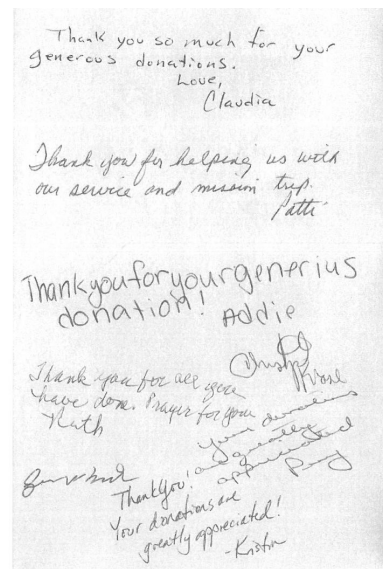 Thank you so much for your
generous donations.
Love,
Claudia
Thank you for helping us with
our service and mission trip.
Patti
Thankyouforyourgenerius
donation! Addie
Thank you for all you
have done. Prayer for you
Ruth
Your donations
are greatly
appreciated
Thank you!
Your donations are
greatly appreciated!
-Kristin